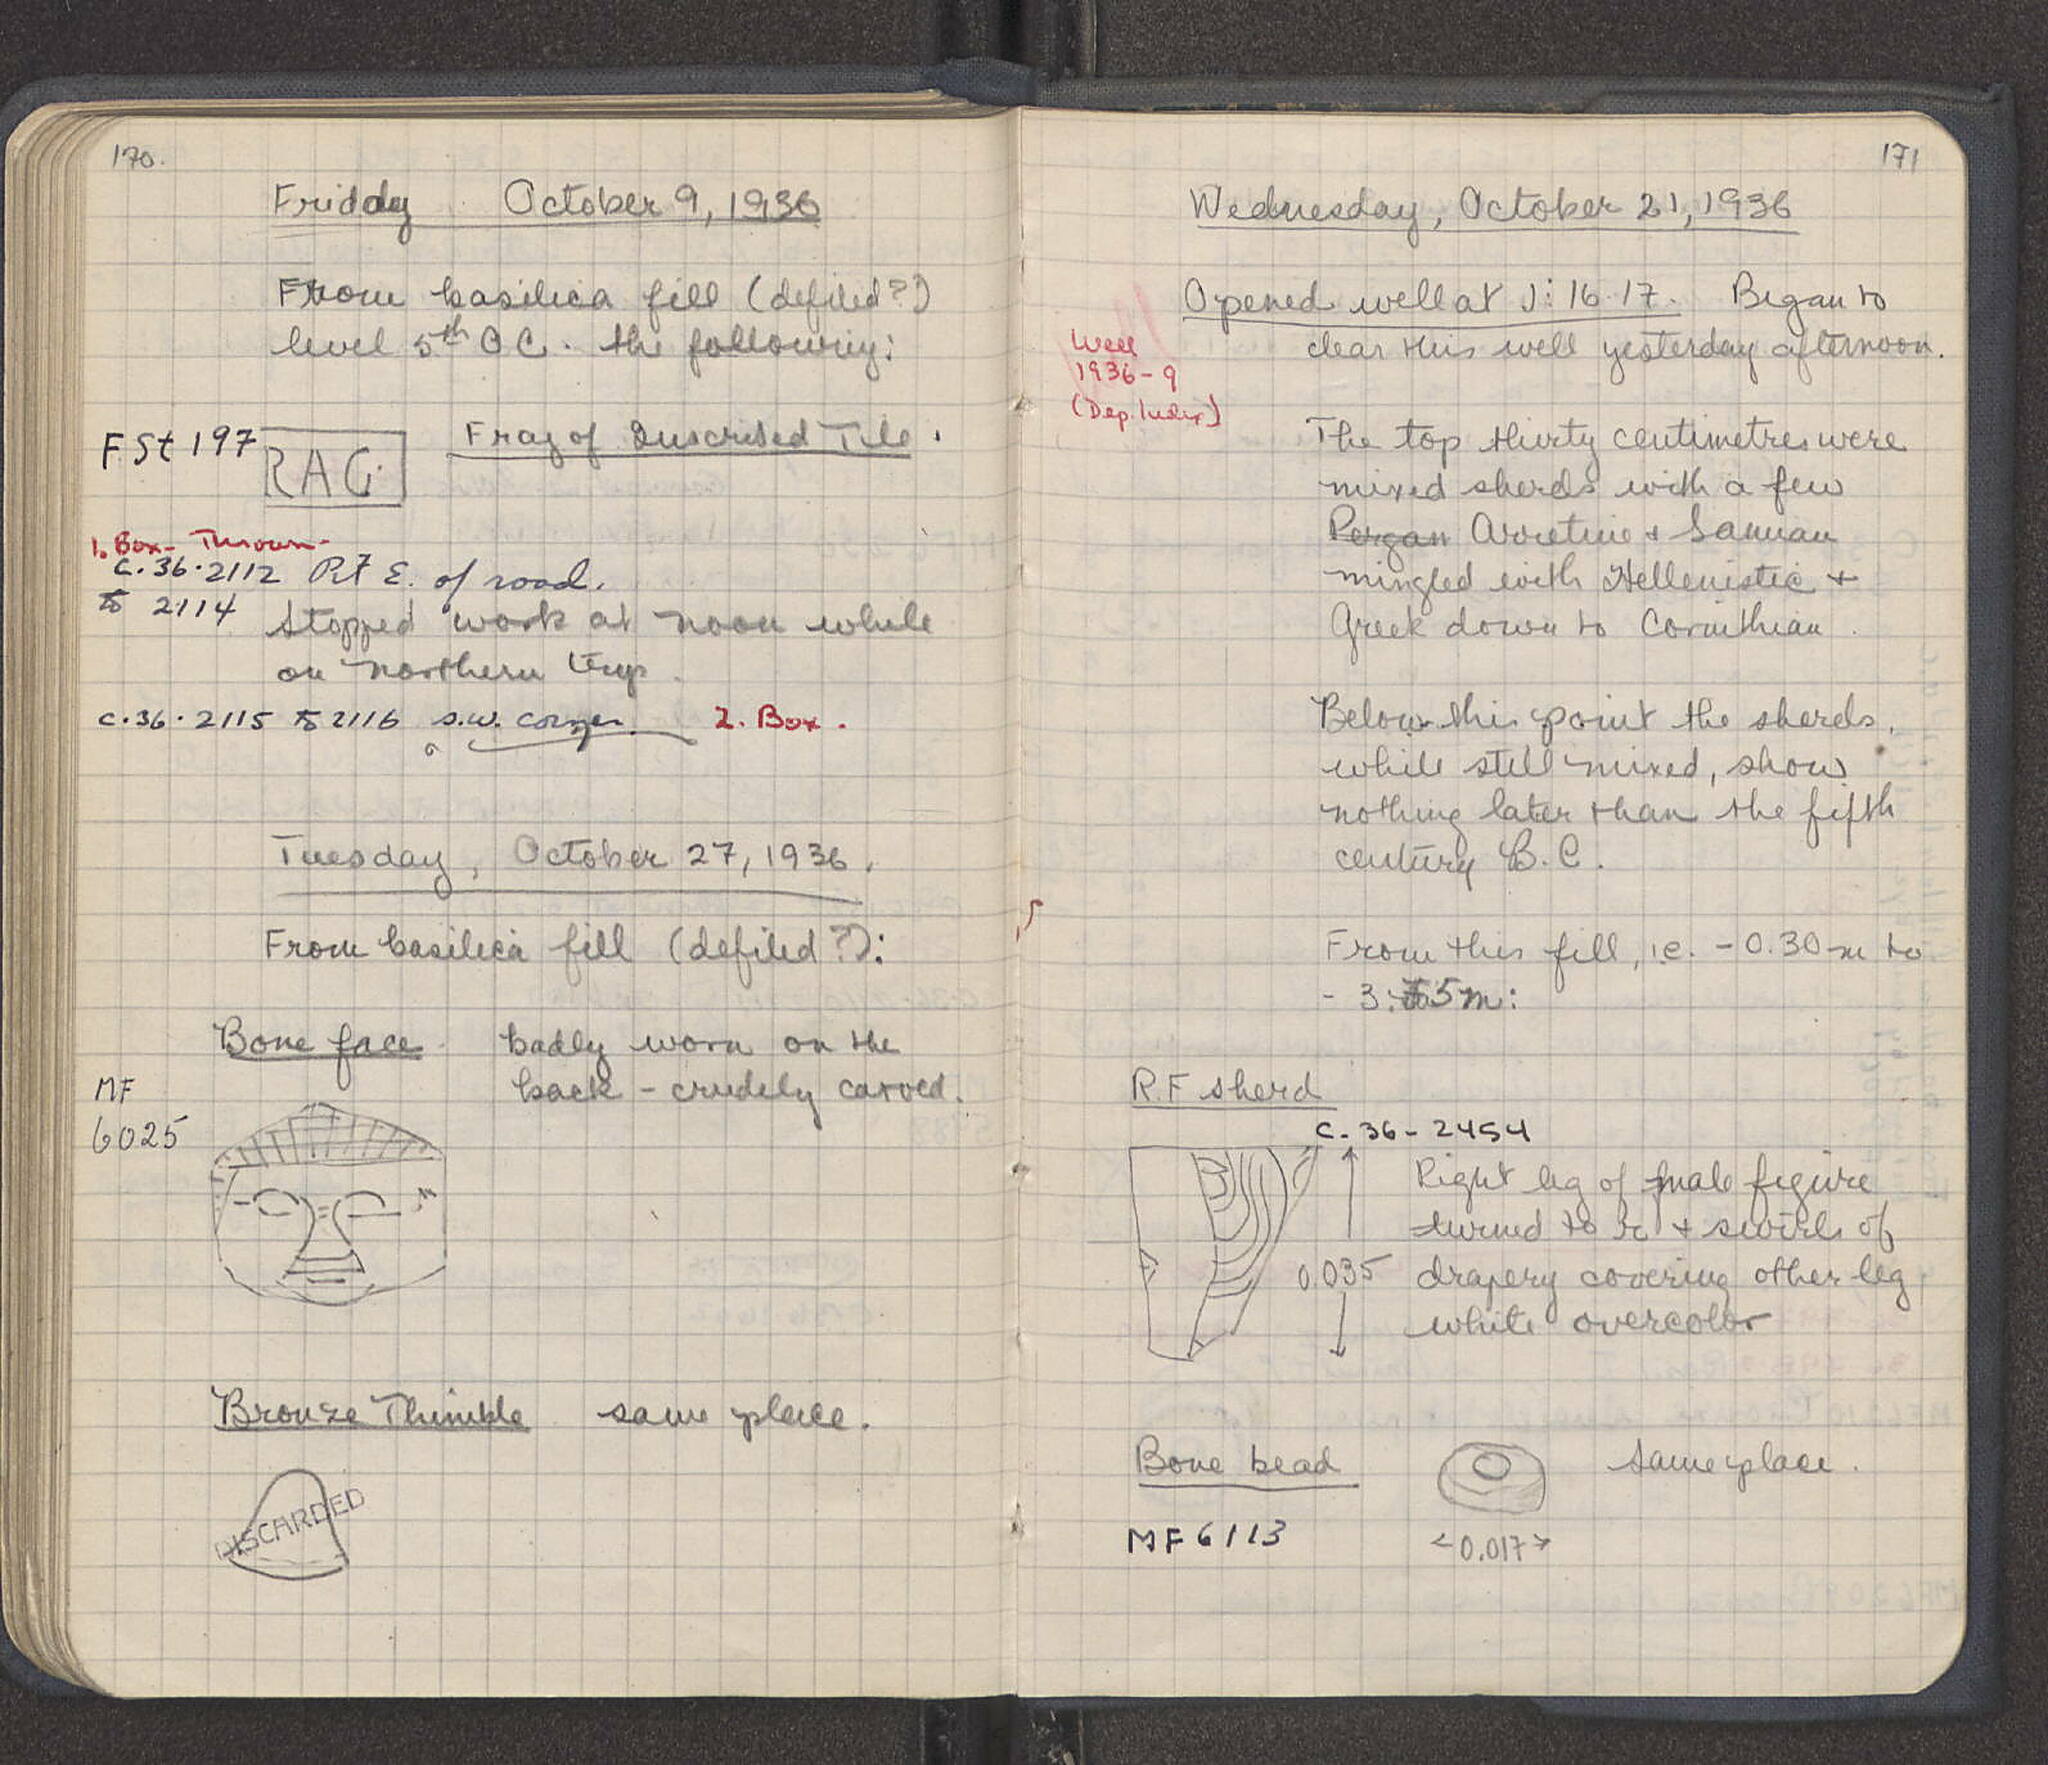 170.
Friday October 9, 1936
From basilica fill (defiled?)
level 5th C. the following:
F St 197
RAG
Frag of Inscribed Tile.
1. Box - Thrown -
C.36.2112 Pit E. of road.
to 2114
Stopped work at noon while
on northern trip.
C.36.2115 to 2116 S.W. Corner 2. Box.
Tuesday, October 27, 1936.
From basilica fill (defiled?):
Bone face badly worn on the
back - crudely carved.
MF
6025
Bronze Thimble same place.
DISCARDED
171
Wednesday, October 21, 1936
Opened well at J: 16-17. Began to
clear this well yesterday afternoon.
Well
1936-9
(Dep. Index)
The top thirty centimetres were
mixed sherds with a few
Pergam Arretine + Samian
mingled with Hellenistic +
Greek down to Corinthian.
Below this point the sherds,
while still mixed, show
nothing later than the fifth
century B.C.
From this fill, i.e. -0.30 m to
- 3. 5m:
R.F sherd
C-36-2454
Right leg of male figure
turned to r + swirls of
0.035 drapery covering other leg
white overcolor
Bone bead same place.
MF 6113
<0.017>